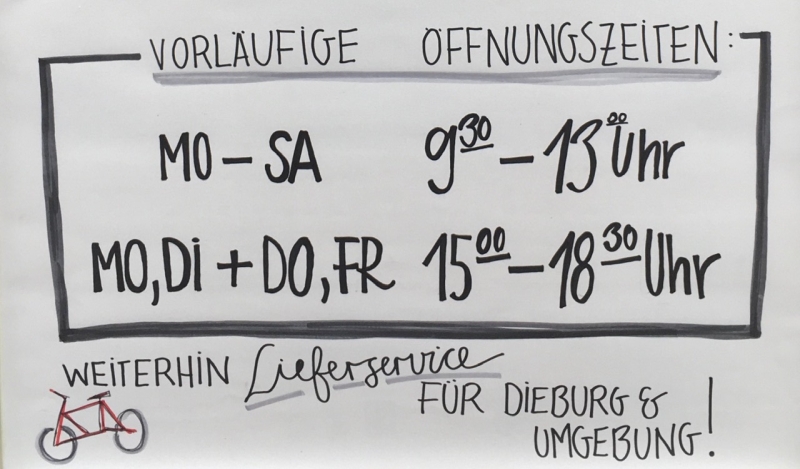 VORLÄUFIGE ÖFFNUNGSZEITEN:
MO – SA 9³⁰ – 13⁰⁰ Uhr
MO, Di + DO, FR 15⁰⁰ – 18³⁰ Uhr
WEiTERHiN Lieferservice
FÜR DiEBURG &
UMGEBUNG!